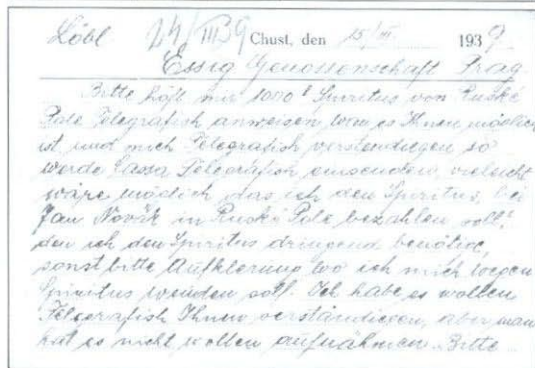 Löbl 24/III39 Chust, den 15/III 1939
Essig Genossenschaft Prag
Bitte höfl. mir 1000 l Spiritus von Ruské
Pole Telegrafish anweisen wen es Ihnen möglich
ist und mich Telegrafish verständiegen so
werde Cassa Telegrafish einsenden, vieleicht
wäre möglich das ich den Spiritus, bei
Jan Novák in Ruské Pole bezahlen soll!
den ich den Spiritus dringend benötige,
sonst bitte Aufklerung wo ich mich wegen
Spiritus wenden soll. Ich habe es wollen
Telegrafish Ihnen verständiegen, aber man
hat es nicht wollen aufnähmen. Bitte